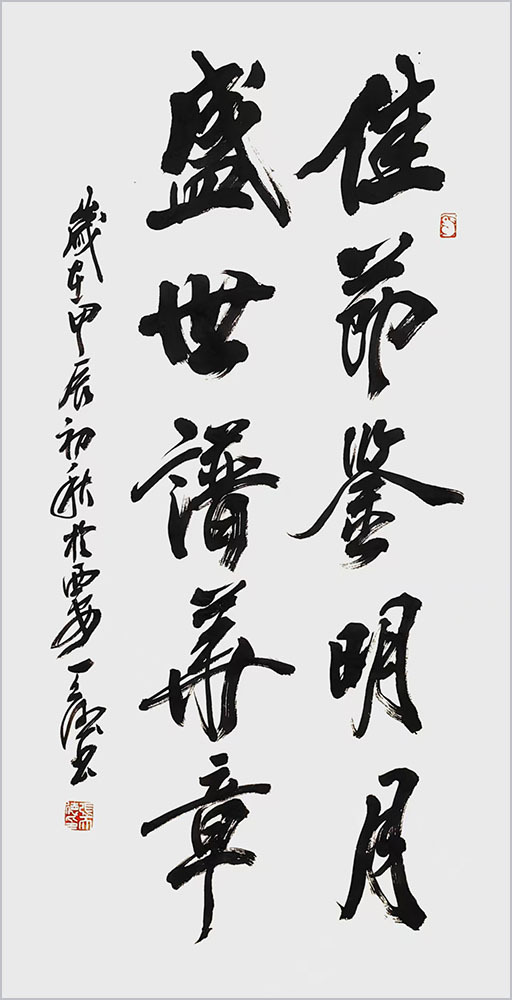 佳節鉴明月
盛世譜華章
歲在甲辰初秋於西安